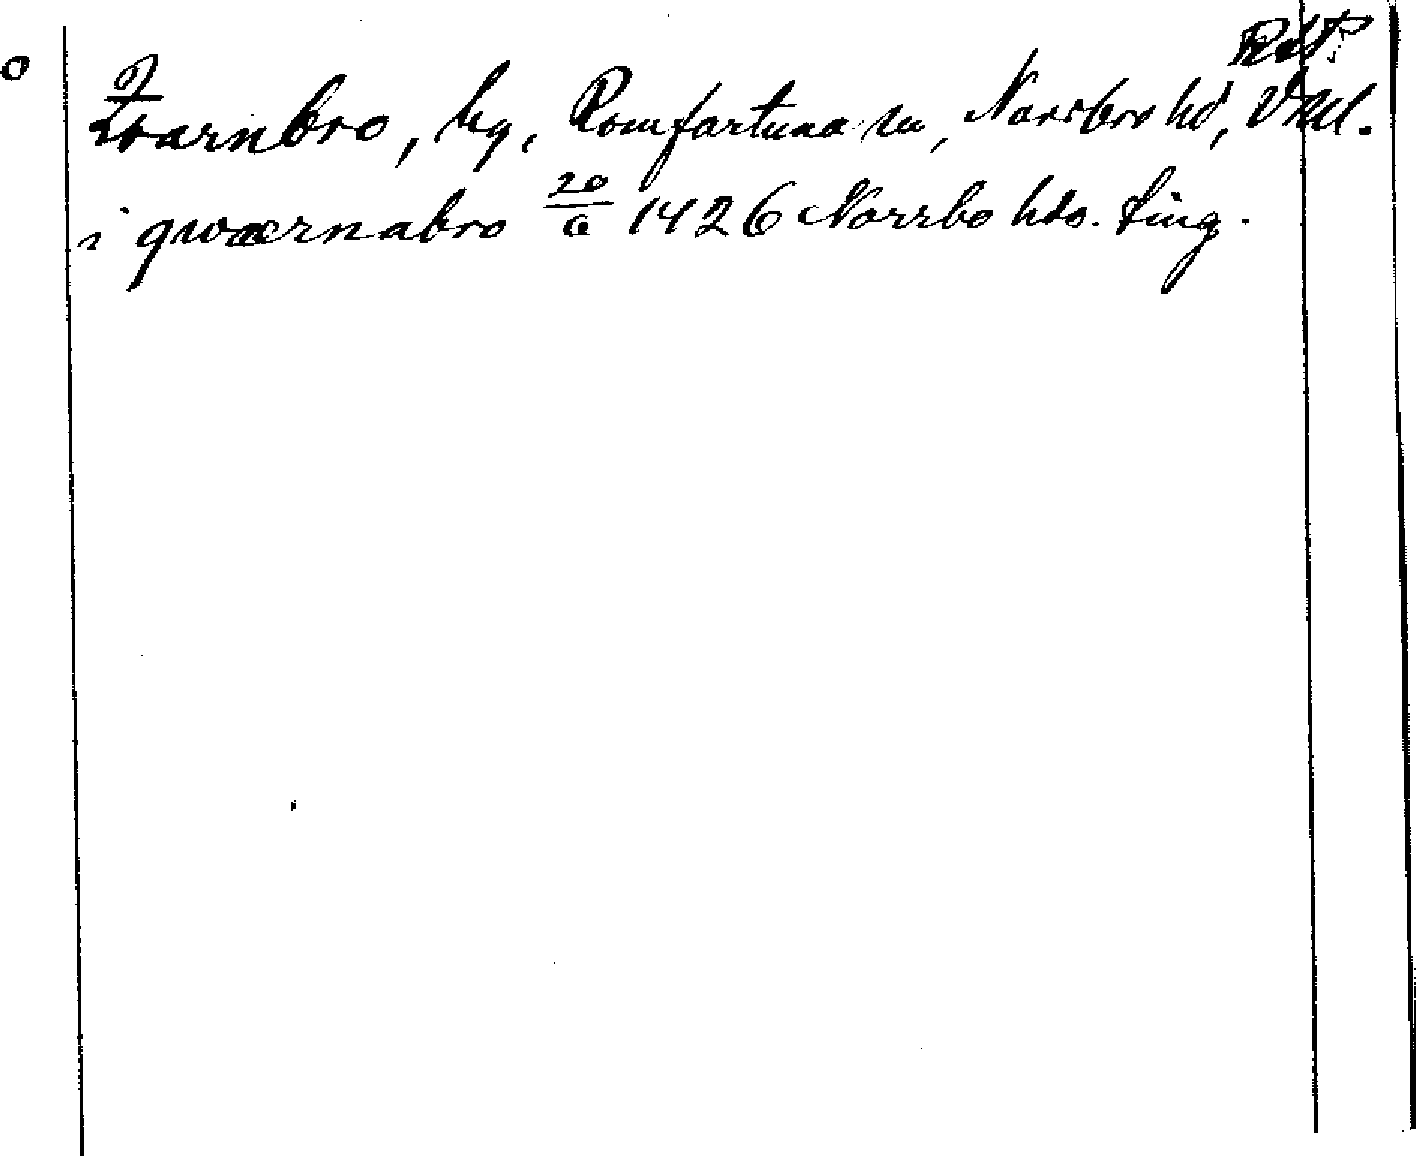 Kvarnbro, by, Romfartuna sn, Norrbo hd, Vstml.
i qwærnabro 20/6 1426 Norrbo hds. ting.